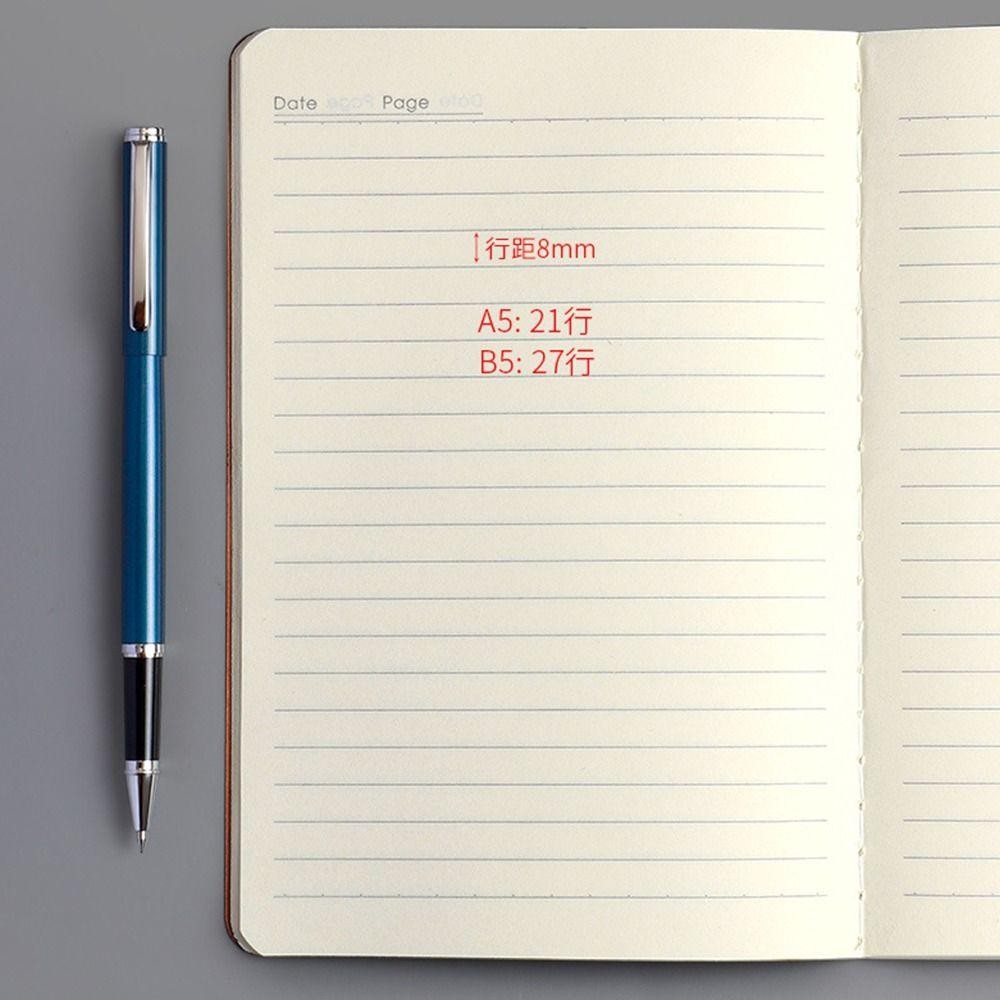 Date Page
行距8mm
A5: 21行
B5: 27行